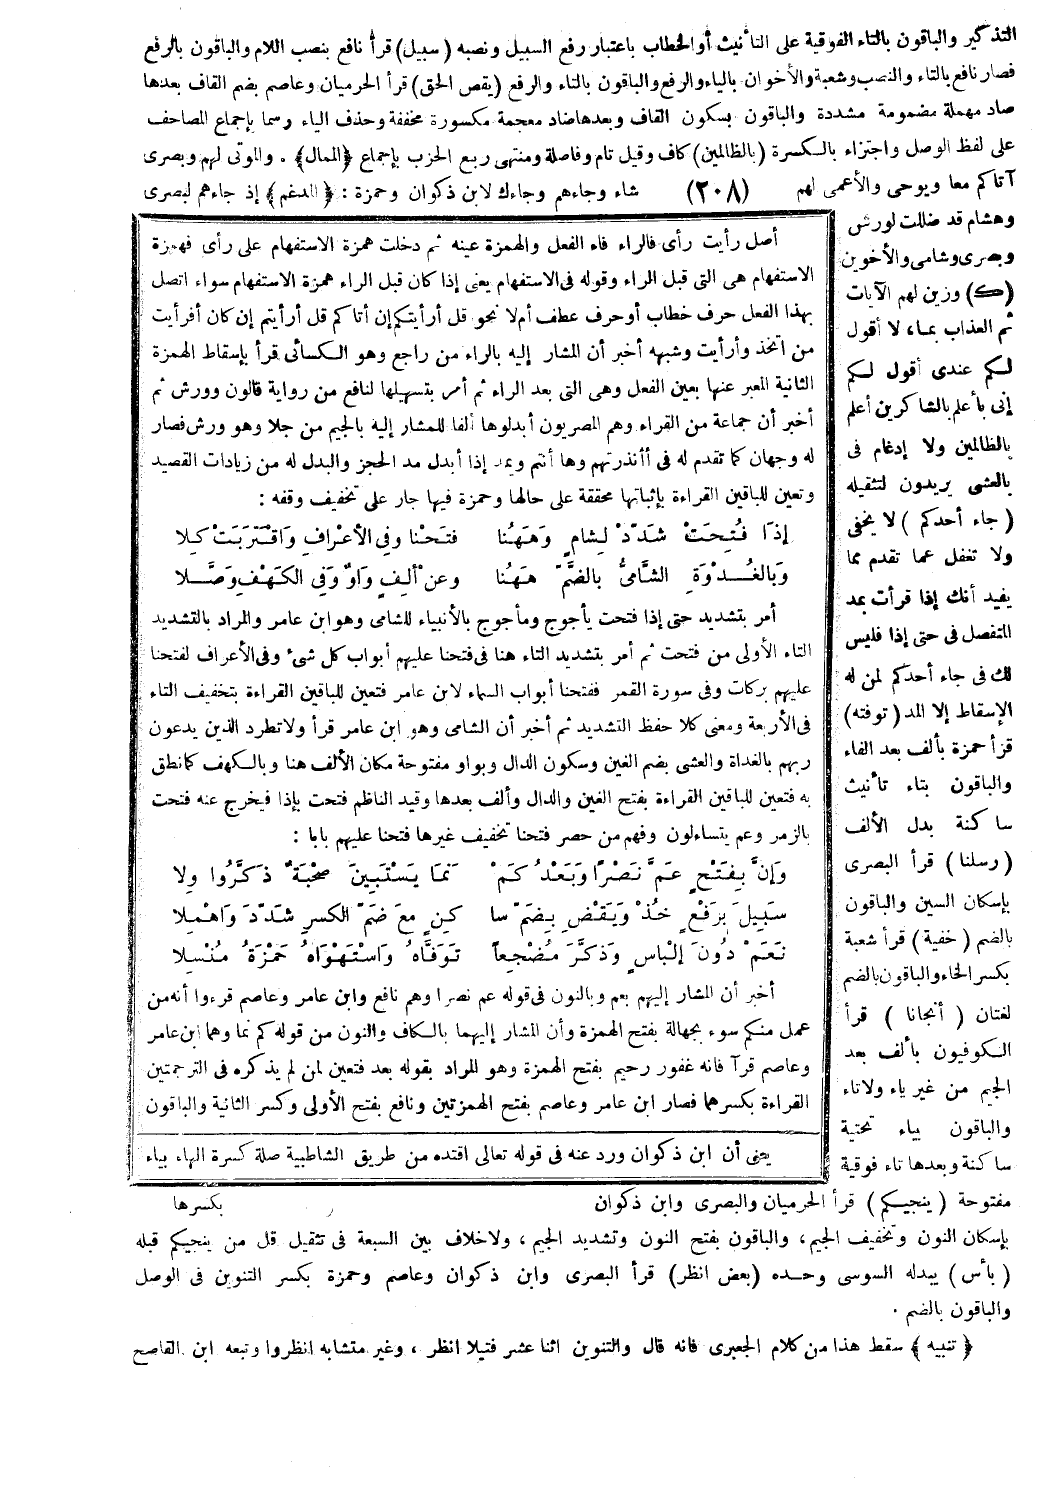 التذكير والباقون بالتاء الفوقية على التأنيث أو الخطاب باعتبار رفع السبيل ونصبه (سبيل) قرأ نافع بنصب اللام والباقون بالرفع
فصار نافع بالتاء والنصب وشعبة والأخوان بالياء والرفع والباقون بالتاء والرفع (يقص الحق) قرأ الحرميان وعاصم بضم القاف بعدها
صاد مهملة مضمومة مشددة والباقون بسكون القاف وبعدها ضاد معجمة مكسورة مخففة وحذف الياء رسما بإجماع المصاحف
على لفظ الوصل واجتزاء بالكسرة (بالظالمين) كاف وقيل تام وفاصلة ومنتهى ربع الحزب بإجماع ﴿الممال﴾ . والموتى لهم وبصرى
آتاكم معا ويوحى والأعمى لهم (٢٠٨) شاء وجاءهم وجاءك لابن ذكوان وحمزة : ﴿المدغم﴾ إذ جاءهم لبصرى
وهشام قد ضللت لورش
وبصرى وشامى والأخوين
(ك) وزين لهم الآيات
ثم العذاب بما، لا أقول
لكم عندى أقول لكم
إنى بأعلم بالشاكرين أعلم
بالظالمين ولا إدغام فى
بالعشى يريدون لتثقيله
(جاء أحدكم) لا يخفى
ولا تغفل عما تقدم مما
يفيد أنك إذا قرأت بمد
المتفصل فى حتى إذا فليس
لك فى جاء أحدكم لمن له
الإسقاط إلا المد (توفته)
قرأ حمزة بألف بعد الفاء
والباقون بتاء تأنيث
ساكنة بدل الألف
(رسلنا) قرأ البصرى
بإسكان السين والباقون
بالضم (خفية) قرأ شعبة
بكسر الخاء والباقون بالضم
لغتان (أنجانا) قرأ
الكوفيون بألف بعد
الجيم من غير ياء ولا تاء
والباقون بياء تحتية
ساكنة وبعدها تاء فوقية
أصل رأيت رأى فالراء فاء الفعل والهمزة عينه ثم دخلت همزة الاستفهام على رأى فهمزة
الاستفهام هى التى قبل الراء وقوله فى الاستفهام يعنى إذا كان قبل الراء همزة الاستفهام سواء اتصل
بهذا الفعل حرف خطاب أو حرف عطف أم لا نحو قل أرأيتكم إن أتاكم قل أرأيتم إن كان أفرأيت
من اتخذ وأرأيت وشبهه أخبر أن المشار إليه بالراء من راجع وهو الكسائى قرأ بإسقاط الهمزة
الثانية المعبر عنها بعين الفعل وهى التى بعد الراء ثم أمر بتسهيلها لنافع من رواية قالون وورش ثم
أخبر أن جماعة من القراء وهم المصريون أبدلوها ألفا للمشار إليه بالجيم من جلا وهو ورش فصار
له وجهان كما تقدم له فى أأنذرتهم وها أنتم ويمد إذا أبدل مد الحجز والبدل له من زيادات القصيد
وتعين للباقين القراءة بإثباتها محققة على حالها وحمزة فيها جار على تخفيف وقفه :
إِذَا فُتِحَتْ شَدِّدْ لِشَامٍ وَهَهُنَا فَتَحْنَا وَفِي الأَعْرَافِ وَاقْتَرَبَتْ كِلَا
وَبِالْغُدْوَةِ الشَّامِيُّ بِالضَّمِّ هَهُنَا وَعَنْ أَلِفٍ وَاوٌ وَفِي الكَهْفِ وَصَّلَا
أمر بتشديد حتى إذا فتحت يأجوج ومأجوج بالأنبياء للشامى وهو ابن عامر والمراد بالتشديد
التاء الأولى من فتحت ثم أمر بتشديد التاء هنا فى فتحنا عليهم أبواب كل شىء وفى الأعراف لفتحنا
عليهم بركات وفى سورة القمر ففتحنا أبواب السماء لابن عامر فتعين للباقين القراءة بتخفيف التاء
فى الأربعة ومعنى كلا حفظ التشديد ثم أخبر أن الشامى وهو ابن عامر قرأ ولا تطرد الذين يدعون
ربهم بالغداة والعشى بضم الغين وسكون الدال وبواو مفتوحة مكان الألف هنا وبالكهف كما نطق
به فتعين للباقين القراءة بفتح الغين والدال وألف بعدها وقيد الناظم فتحت بإذا فيخرج عنه فتحت
بالزمر وعم يتساءلون وفهم من حصر فتحنا تخفيف غيرها فتحنا عليهم بابا :
وَإِنَّ بِفَتْحٍ عَمَّ نَصْرًا وَبَعْدُ كَمْ نَمَا يَسْتَبِينَ صُحْبَةٌ ذَكَّرُوا وِلَا
سَبِيلَ بِرَفْعٍ خُذْ وَيَقْضِ بِضَمِّ سَا كِنٍ مَعَ ضَمِّ الكَسْرِ شَدِّدْ وَأَهْمِلَا
نَعَمْ دُونَ إِلْبَاسٍ وَذَكَّرَ مُضْجِعاً تَوَفَّاهُ وَاسْتَهْوَاهُ حَمْزَةُ مُنْسِلَا
أخبر أن المشار إليهم بعم وبالنون فى قوله عم نصرا وهم نافع وابن عامر وعاصم قرءوا أنه من
عمل منكم سوء بجهالة بفتح الهمزة وأن المشار إليهما بالكاف والنون من قوله كم نما وهما ابن عامر
وعاصم قرآ فانه غفور رحيم بفتح الهمزة وهو المراد بقوله بعد فتعين لمن لم يذكره فى الترجمتين
القراءة بكسرها فصار ابن عامر وعاصم بفتح الهمزتين ونافع بفتح الأولى وكسر الثانية والباقون
يحق أن ابن ذكوان ورد عنه فى قوله تعالى اقتده من طريق الشاطبية صلة كسرة الهاء بياء
بكسرها
مفتوحة (ينجيكم) قرأ الحرميان والبصرى وابن ذكوان
بإسكان النون وتخفيف الجيم، والباقون بفتح النون وتشديد الجيم، ولا خلاف بين السبعة فى تثقيل قل من ينجيكم قبله
(بأس) يبدله السوسى وحده (بعض انظر) قرأ البصرى وابن ذكوان وعاصم وحمزة بكسر التنوين فى الوصل
والباقون بالضم .
﴿تنبيه﴾ سقط هذا من كلام الجعبرى فانه قال والتنوين اثنا عشر فتيلا انظر ، وغير متشابه انظروا وتبعه ابن القاصح